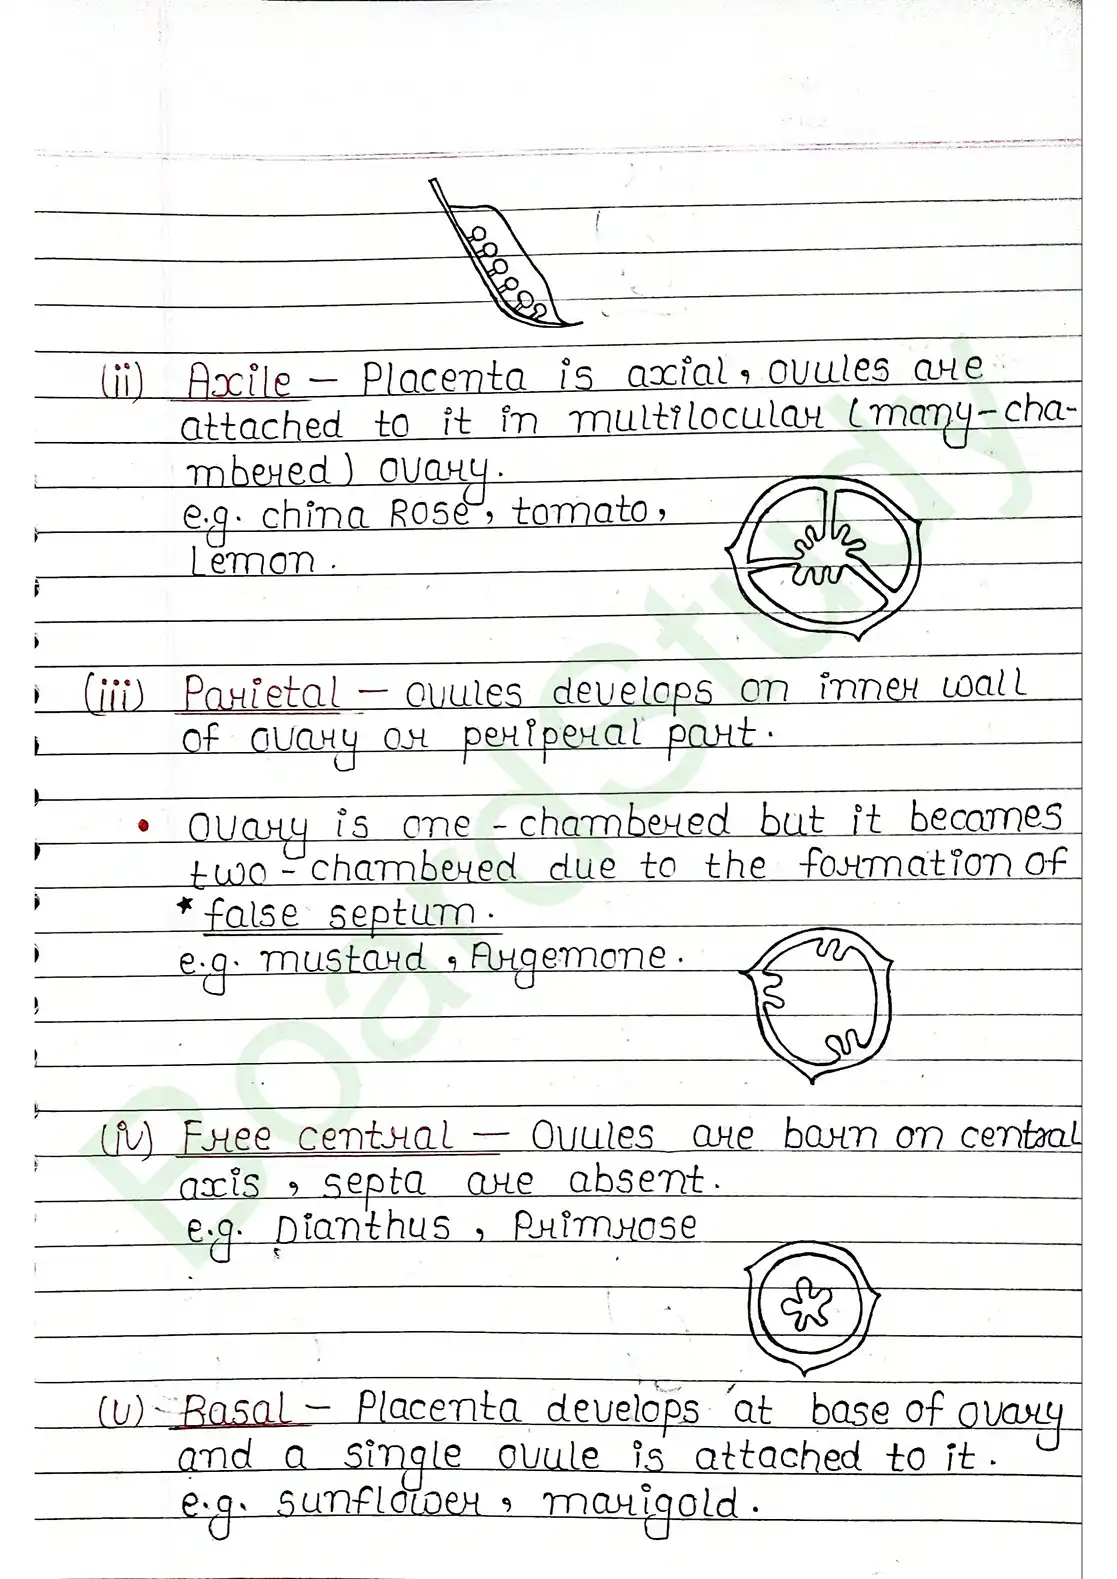 (ii) Axile – Placenta is axial, ovules are
attached to it in multilocular (many-cha-
mbered) ovary.
e.g. china Rose, tomato,
Lemon.
(iii) Parietal – ovules develops on inner wall
of ovary or periperal part.
• Ovary is one-chambered but it becomes
two-chambered due to the formation of
* false septum.
e.g. mustard, Argemone.
(iv) Free central – Ovules are born on central
axis, septa are absent.
e.g. Dianthus, Primrose
(v) Basal – Placenta develops at base of ovary
and a single ovule is attached to it.
e.g. sunflower, marigold.
BoardStudy